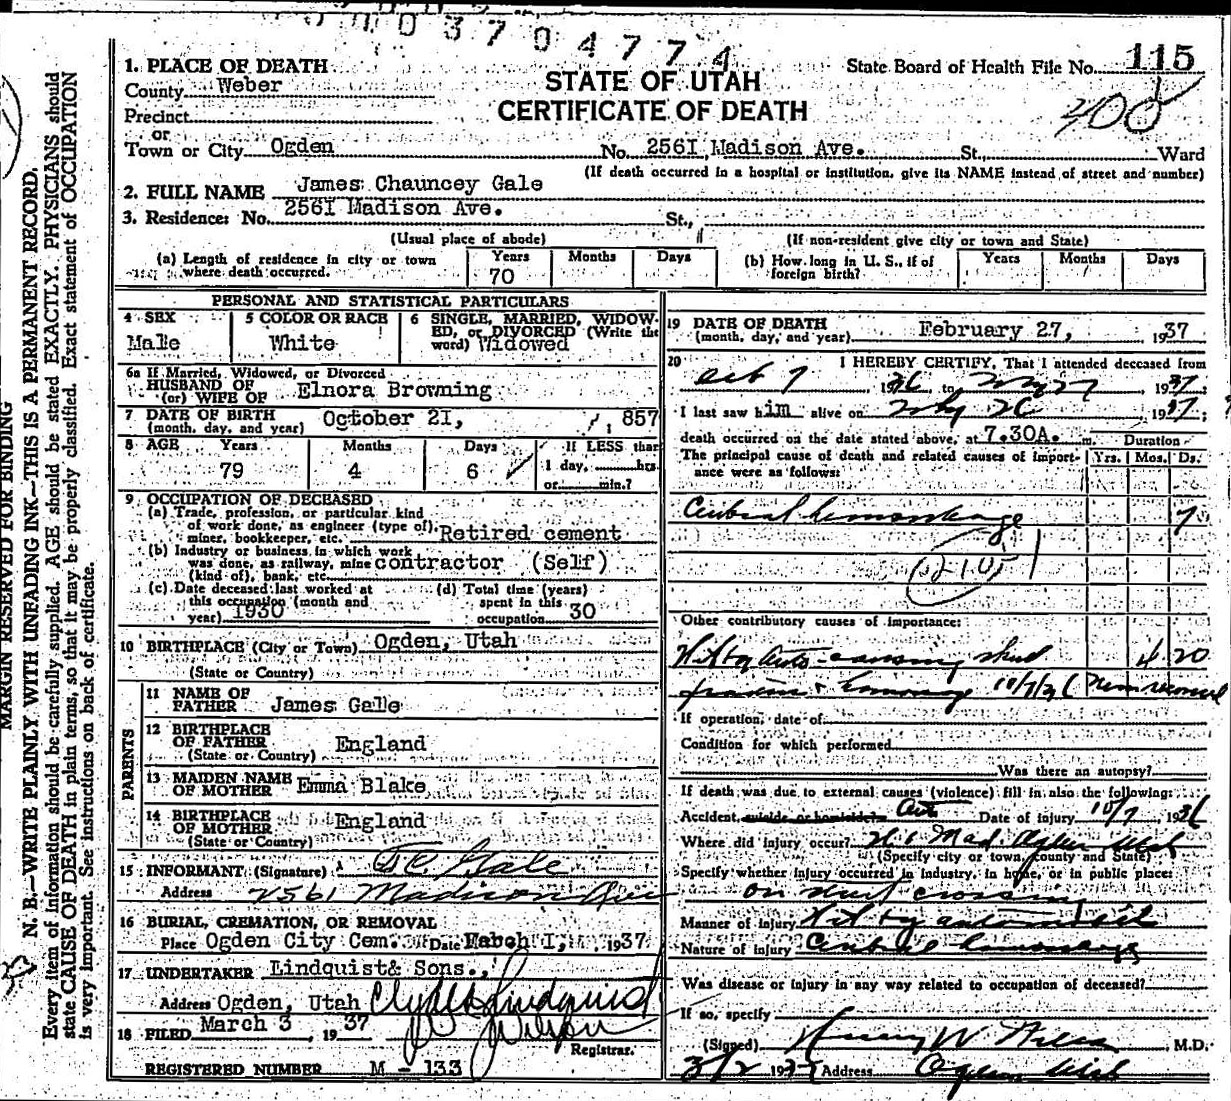 0003704774
115
State Board of Health File No.
400
STATE OF UTAH
CERTIFICATE OF DEATH
1. PLACE OF DEATH
County Weber
Precinct
or
Town or City Ogden No. 2561 Madison Ave. St., Ward
(If death occurred in a hospital or institution, give its NAME instead of street and number)
2. FULL NAME James Chauncey Gale
3. Residence: No. 2561 Madison Ave. St.,
(Usual place of abode) (If non-resident give city or town and State)
(a) Length of residence in city or town where death occurred. Years 70 Months Days
(b) How long in U. S., if of foreign birth? Years Months Days
PERSONAL AND STATISTICAL PARTICULARS
4 SEX Male
5 COLOR OR RACE White
6 SINGLE, MARRIED, WIDOWED, or DIVORCED (Write the word) Widowed
6a If Married, Widowed, or Divorced
HUSBAND OF
(or) WIFE OF Elnora Browning
7 DATE OF BIRTH
(month, day, and year) October 21, 1, 857
8 AGE Years 79 Months 4 Days 6
If LESS than
1 day, hrs.
or min.?
9 OCCUPATION OF DECEASED
(a) Trade, profession, or particular kind
of work done, as engineer (type of),
miner, bookkeeper, etc. Retired cement
(b) Industry or business in which work
was done, as railway, mine contractor (Self)
(kind of), bank, etc.
(c) Date deceased last worked at
this occupation (month and
year) 1930
(d) Total time (years)
spent in this
occupation 30
10 BIRTHPLACE (City or Town) Ogden, Utah
(State or Country)
PARENTS
11 NAME OF
FATHER James Gale
12 BIRTHPLACE
OF FATHER England
(State or Country)
13 MAIDEN NAME
OF MOTHER Emma Blake
14 BIRTHPLACE
OF MOTHER England
(State or Country)
15 INFORMANT (Signature) Gale
Address 2561 Madison Ave
16 BURIAL, CREMATION, OR REMOVAL
Place Ogden City Cem. Date March 1, 1937
17 UNDERTAKER Lindquist & Sons.,
Address Ogden, Utah Clyde Lindquist
18 FILED March 3 1937
Registrar.
REGISTERED NUMBER M - 133
19 DATE OF DEATH
(month, day, and year) February 27, 1937
20 I HEREBY CERTIFY, That I attended deceased from
Oct 7 1936 to 27 1937;
I last saw him alive on 26 1937;
death occurred on the date stated above, at 7.30A. m. Duration
The principal cause of death and related causes of importance were as follows: Yrs. Mos. Ds.
Cerebral hemorrhage 7
Other contributory causes of importance:
Hit by Auto - causing skull 4 20
fracture & hemorrhage 10/7/36
If operation, date of
Condition for which performed
Was there an autopsy?
If death was due to external causes (violence) fill in also the following:
Accident, suicide or homicide? Auto Date of injury 10/7 1936
Where did injury occur? Mad. Ogden Utah
(Specify city or town, county and State)
Specify whether injury occurred in industry, in home, or in public place:
on street crossing
Manner of injury Hit by automobile
Nature of injury Cerebral hemorrhage
Was disease or injury in any way related to occupation of deceased?
If so, specify
(Signed) M.D.
3/2 1937 Address Ogden Utah
MARGIN RESERVED FOR BINDING
N. B.—WRITE PLAINLY WITH UNFADING INK—THIS IS A PERMANENT RECORD.
Every item of information should be carefully supplied. AGE should be stated EXACTLY. PHYSICIANS should
state CAUSE OF DEATH in plain terms, so that it may be properly classified. Exact statement of OCCUPATION
is very important. See instructions on back of certificate.